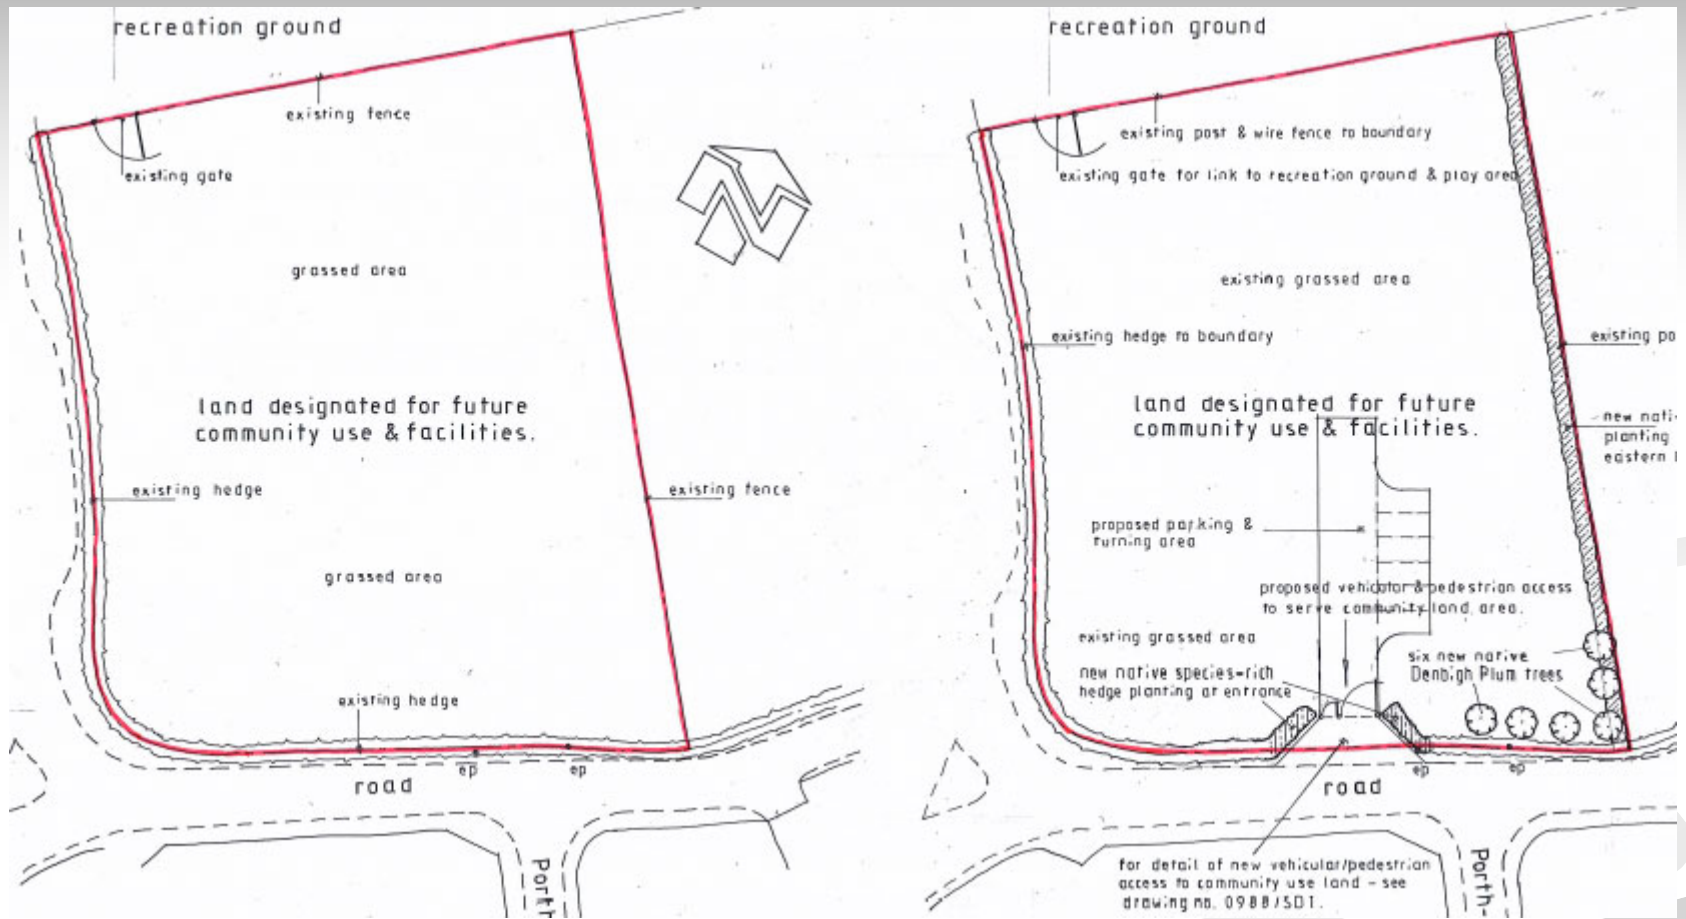 recreation ground
existing fence
existing gate
grassed area
land designated for future
community use & facilities.
existing hedge
existing fence
grassed area
existing hedge
ep
ep
road
Porth
recreation ground
existing post & wire fence to boundary
existing gate for link to recreation ground & play area
existing grassed area
existing hedge to boundary
existing po
land designated for future
community use & facilities.
new nati
planting
eastern
proposed parking &
turning area
proposed vehicular & pedestrian access
to serve community land area.
existing grassed area
new native species-rich
hedge planting at entrance
six new native
Denbigh Plum trees
ep
ep
road
Porth-
for detail of new vehicular/pedestrian
access to community use land - see
drawing no. 0988/SD1.